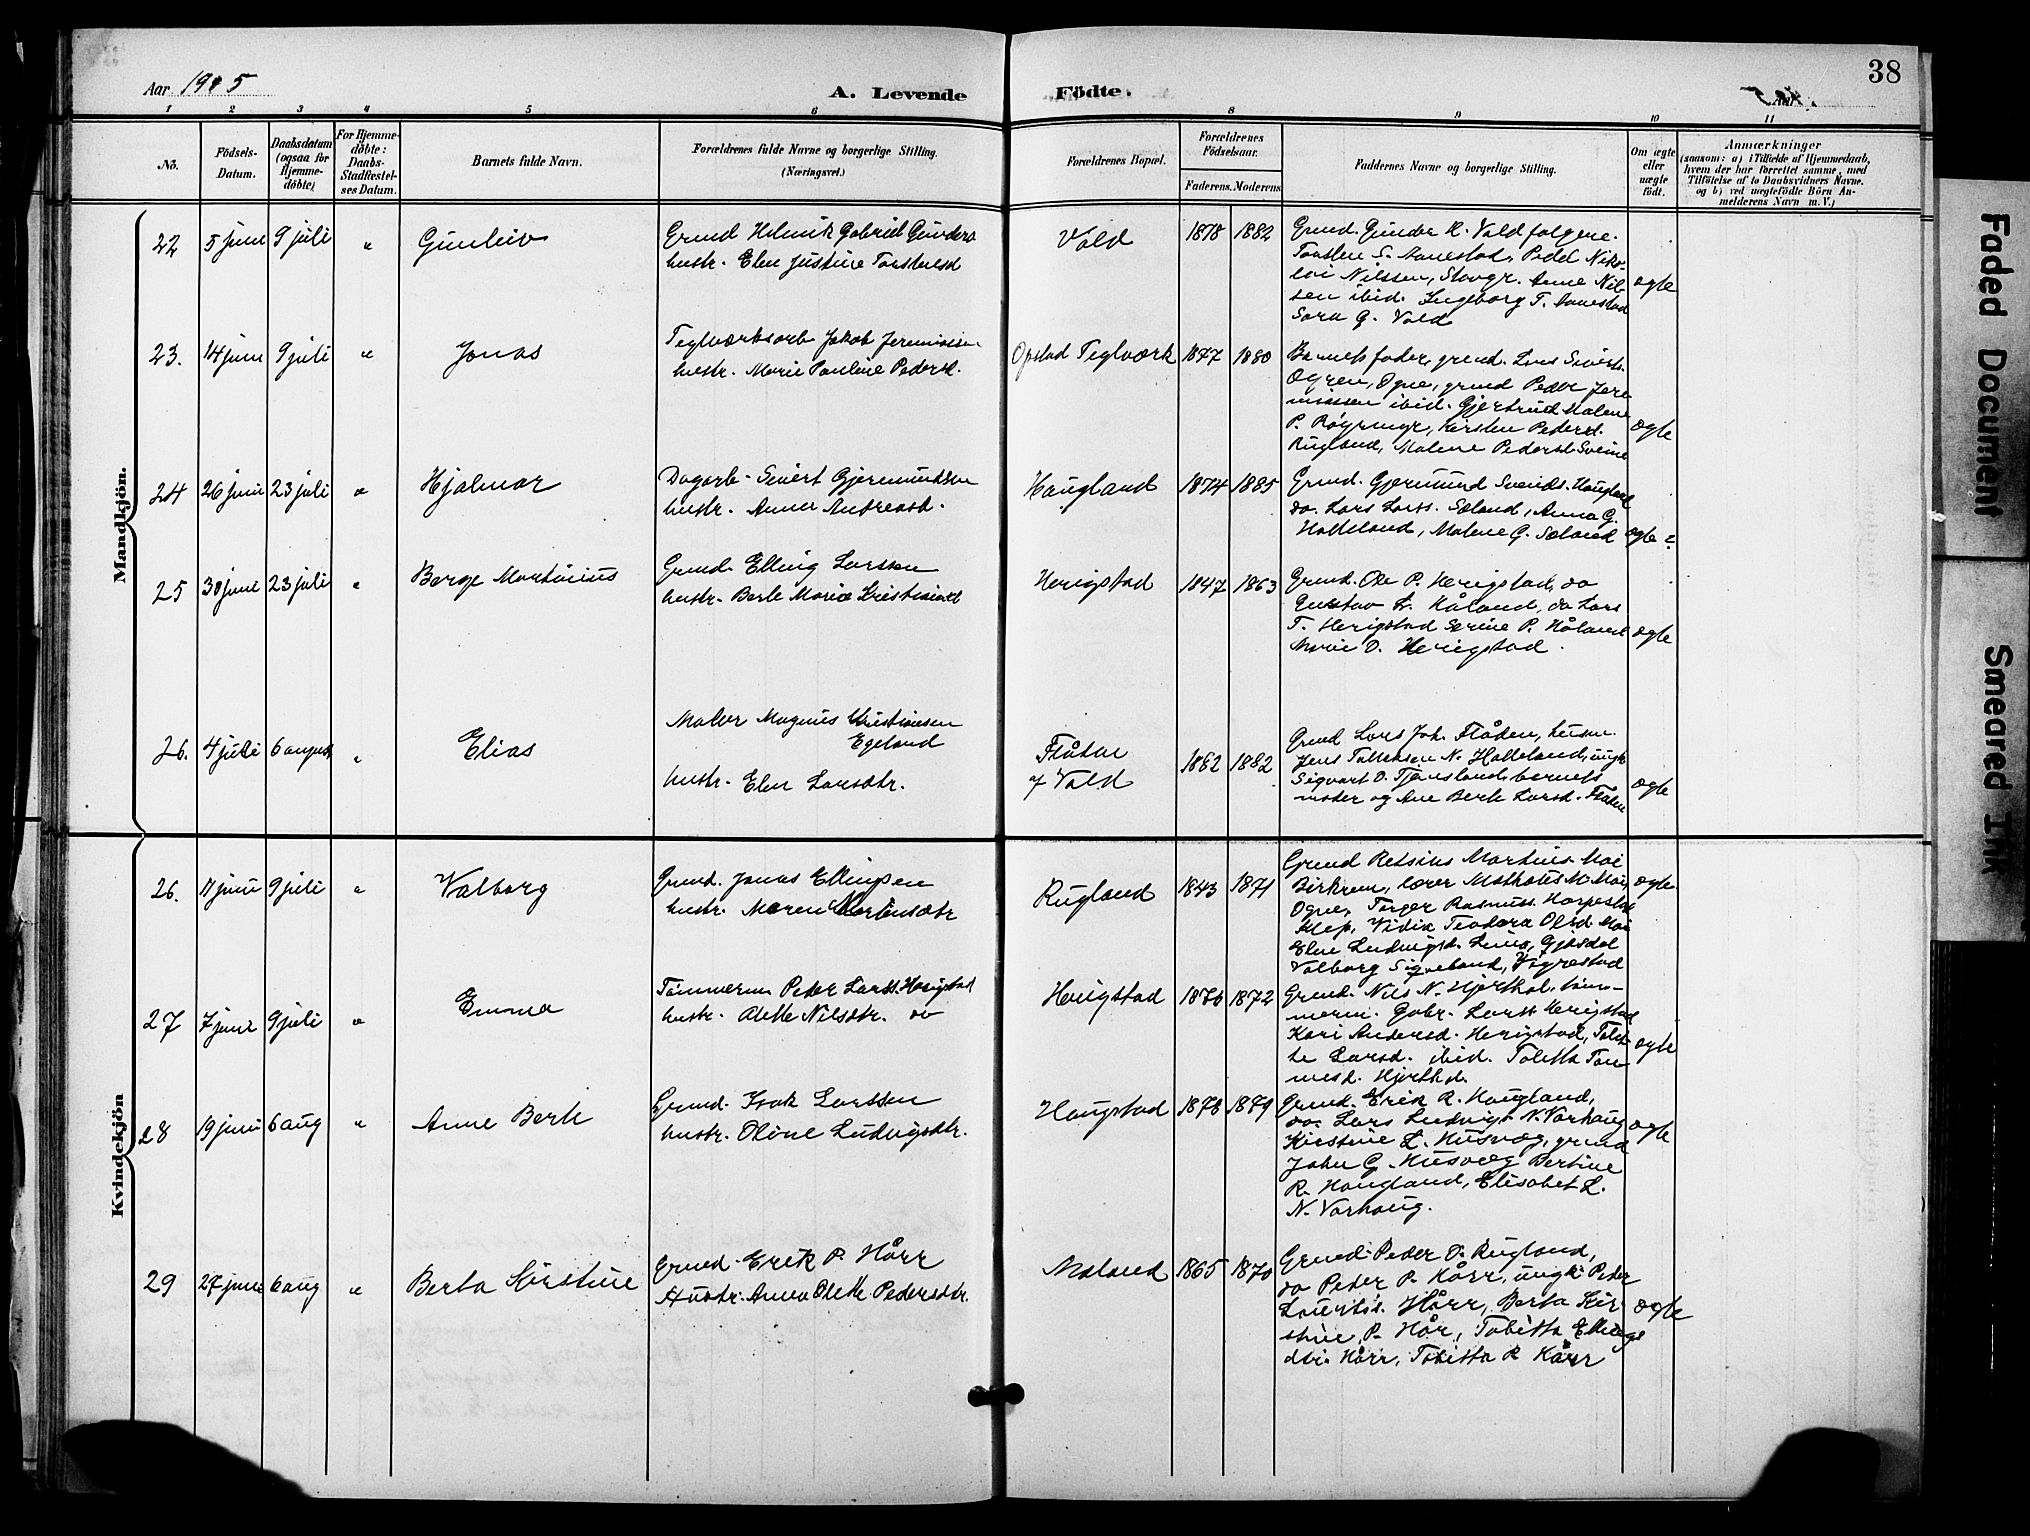 38
Aar 1905
A. Levende Födte.
1 2 3 4 5 6 8 9 10 11
No.
Födsels-Datum.
Daabsdatum (ogsaa for Hjemme-döbte)
For Hjemme-döbte: Daabs-Stadfæstel-ses Datum.
Barnets fulde Navn.
Forældrenes fulde Navne og borgerlige Stilling.
(Næringsvei.)
Forældrenes Bopæl.
Forældrenes Födselsaar.
Faderens. Moderens.
Faddernes Navne og borgerlige Stilling.
Om ægte eller uægte födt.
Anmærkninger
(saasom: a) i Tilfælde af Hjemmedaab,
hvem der har forrettet samme, med
Tilföielse af to Daabsvidners Navne.
og b) ved uægtefödte Börn An-
melderens Navn m. V.)
Mandkjön.
22 5 juni 9 juli " Gunleiv
Grund Helmik Gabriel Gunders
hustr. Elen Justine Torstensd
Vold 1878 1882
Grund. Gunder R. Vold
Torsten S. Aanestad, Pedd Niko-
lai Nilssen, Stavgr. Anne Nil-
sen ibid. Ingeborg T. Aanestad
Sara G. Vold
ægte
23. 14 juni 9 juli " Jonas
Teglværksarb. Jakob Jeremiassen
hustr. Marie Pauline Pedersd.
Opstad Teglværk 1877 1880
Barnets fader, grund. Lars Siverts.
Ogne, grund Peder Jere
miassen ibid. Gjertrud Malene
P. Røyrmyr, Kirsten Pedersd.
Rugland, Malene Pedersd
ægte
24 26 juni 23 juli " Hjalmar
Dagarb. Sivert Gjermundsen
hustr. Anna Andreasd.
Haugland 1874 1885
Grund. Gjermund Svends. Haugland
do. Lars Larss. Sæland, Anna G.
Halleland, Malene G. Sæland
ægte
25 30 juni 23 juli " Berge Martinius
Grund. Elling Larssen
hustr. Berte Marie Kristiansd
Herigstad 1847 1863
Grund. Ole P. Herigstad, do
Gustav L. Håland, do Lars
T. Herigstad Serine P. Håland
Marie O. Herigstad.
ægte
26. 4 juli 6 august " Elias
Maler Magnus Kristiansen
Egeland
hustr. Elen Larsdtr.
Flåten
af Vold
1862 1882
Grund Lars Joh. Flåden, husm.
Jens Tolleksen N. Halleland, ungk
Sigvart O. Tjånsland, barnets
moder og Ane Berte Larsd. Flåten
ægte
Kvindekjön
26. 11 juni 9 juli " Valborg
Grund. Jonas Ellingsen
hustr. Maren Mortensdtr
Rugland 1843 1871
Grund Retsius Martins Moi
Birkrem, lærer Mathæus M. Moi,
Ogne, Torger Rasmuss. Horpestad
Klep, Vidia Teodora Olsd. Moi
Elne Ludvigsd. Lima, Gjesdal
Valborg Sigveland, Vigrestad
ægte
27 7 juni 9 juli " Emma
Tømmerm. Peder Larss. Herigstad
hustr. Olette Nilsdtr. do
Herigstad 1876 1872
Grund. Nils N. Hjorthol, tøm-
merm. Gabr. Larss Herigstad
Kari Andersd. Herigstad, Tolet-
te Larsd. ibid. Toletta Tøn
nesd. Hjorthol
ægte
28 19 juni 6 aug " Anne Berte
Grund. Isak Larssen
hustr. Oline Ludvigsdtr.
Haugstad 1878 1879
Grund. Erik R. Haugland,
do. Lars Ludvigs. N. Varhaug
Kirstine L. Husvæg, grund
John G. Husvæg Bertine
R. Haugland, Elisabet L.
N. Varhaug.
ægte
29 27 juni 6 aug " Berta Kirstine
Grund. Erik P. Hårr
Hustr. Anna Olette Pedersdtr.
Moland 1865 1870
Grund Peder O. Rugland,
do Peder P. Hårr, ungk. Peder
Lauritss. Hårr, Berta Kir-
stine P. Hår, Tobitta Ellings
dtr. Hårr, Tobitta R Hårr
ægte
Faded Document
Smeared Ink